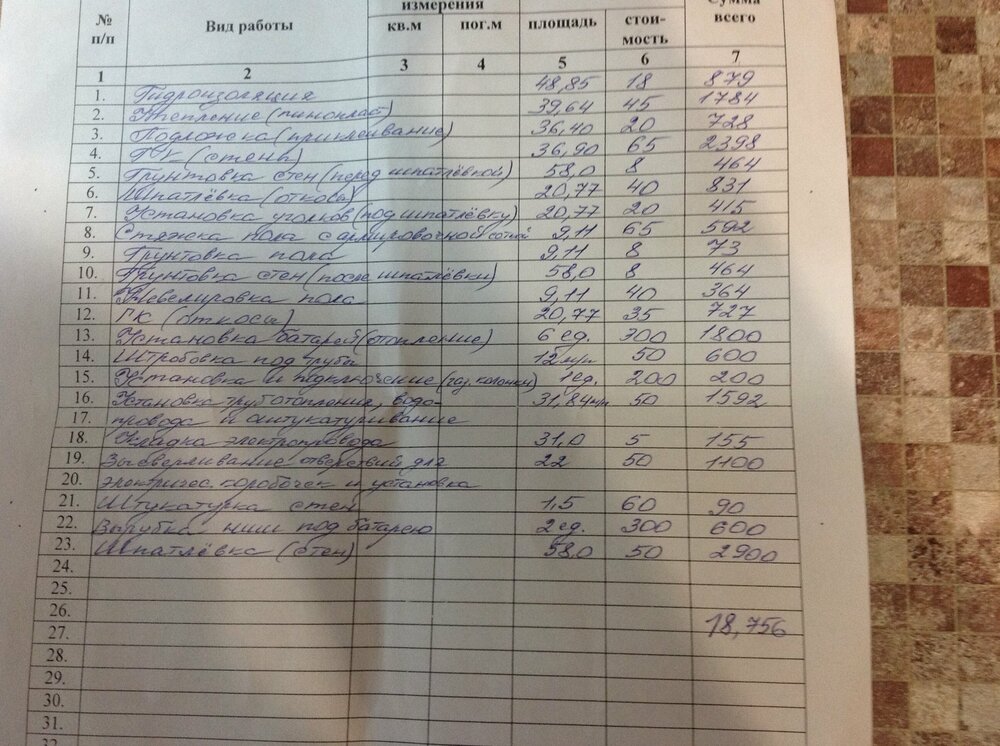 № п/п Вид работы измерения кв.м пог.м площадь стои-мость Сумма всего
1 2 3 4 5 6 7
1. Гидроизоляция 48,85 18 879
2. Утепление (пинопласт) 39,64 45 1784
3. Подложка (приклеивание) 36,40 20 728
4. ГК (стены) 36,90 65 2398
5. Грунтовка стен (перед шпатлёвкой) 58,0 8 464
6. Шпатлёвка (откосы) 20,77 40 831
7. Установка уголков (под шпатлёвку) 20,77 20 415
8. Стяжка пола с армировочной сеткой 9,11 65 592
9. Грунтовка пола 9,11 8 73
10. Грунтовка стен (после шпатлёвки) 58,0 8 464
11. Нивелировка пола 9,11 40 364
12. ГК (откосы) 20,77 35 727
13. Установка батарей (отопление) 6 ед. 300 1800
14. Штробовка под трубы 12 м/п 50 600
15. Установка и подключение (газ. колонки) 1 ед. 200 200
16. Установка труб отопления, водо- 31,84 м/п 50 1592
17. провода и оштукатуривание
18. Укладка электропровода 31,0 5 155
19. Высверливание отверствий для 22 50 1100
20. электричес. коробочек и установка
21. Штукатурка стен 1,5 60 90
22. Вырубка ниш под батарею 2 ед. 300 600
23. Шпатлёвка (стен) 58,0 50 2900
24.
25.
26.
27. 18,756
28.
29.
30.
31.
32